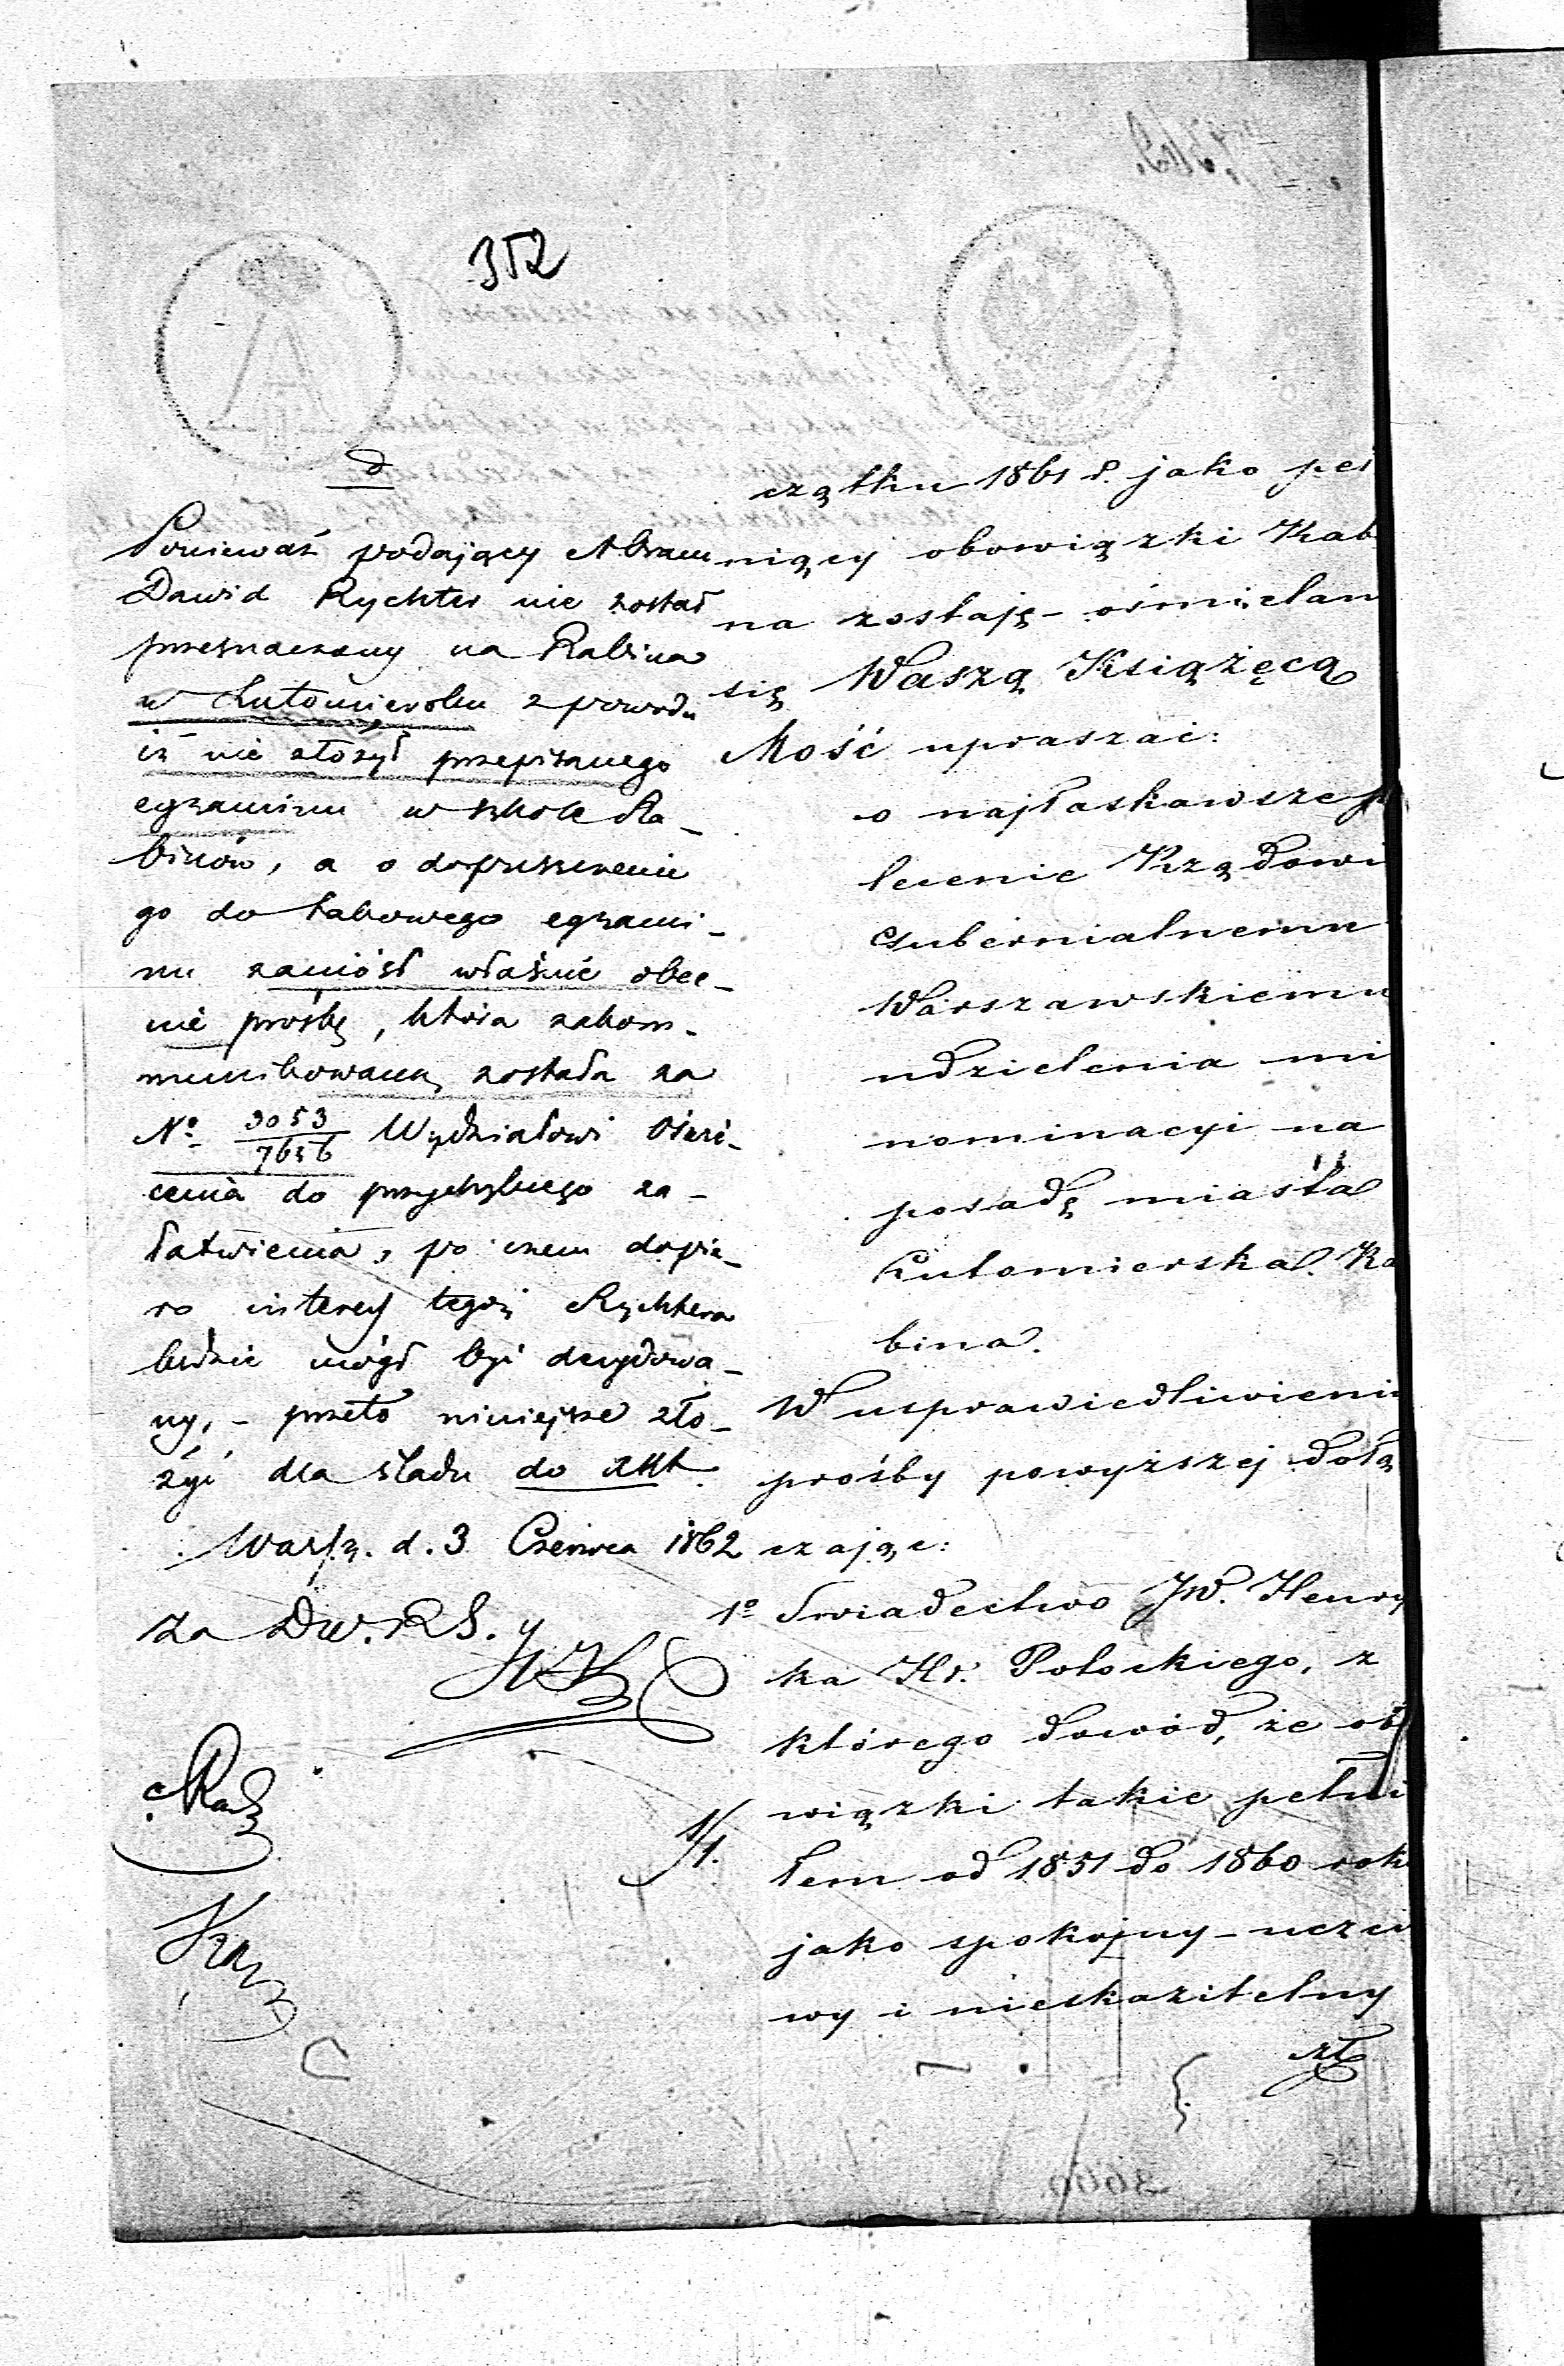 352
Ponieważ podający Abram
Dawid Rychter nie został
przeznaczony na Rabina
w Lutomiersku z powodu
iż nie złożył przepisanego
egzaminu w szkole Ra_
binów, a o dopuszczenie
go do takowego egzami_
nu zaniósł właśnie obec_
nie prośbę, która zakom_
munikowaną została za
No 3053/7656 Wydziałowi Oświe_
cenia do przychylnego za_
łatwienia, po czem dopie_
ro interes tegoż Rychtera
będzie mógł być decydowa_
ny, - przeto niniejsze zło_
żyć dla śladu do akt.
Warsz. d. 3 Czerwca 1862
za Dyr.
czątku 1861 r. jako peł
niący obowiązki Rab
na zostaję - ośmielam
się Waszą Książęcą
Mość upraszać:
o najłaskawsze p
lecenie Rządowi
Gubernialnemu
Warszawskiemu
udzielenia mi
nominacyi na
posadę miasta
Lutomierska Ra
bina.
W usprawiedliwieniu
prośby powyższej dołą
czając:
1o Świadectwo JW. Henry
ka Hr. Potockiego, z
którego dowód, że obo
wiązki takie pełni
łem od 1851 do 1860 roku
jako spokojny - uczci
wy i nieskazitelny